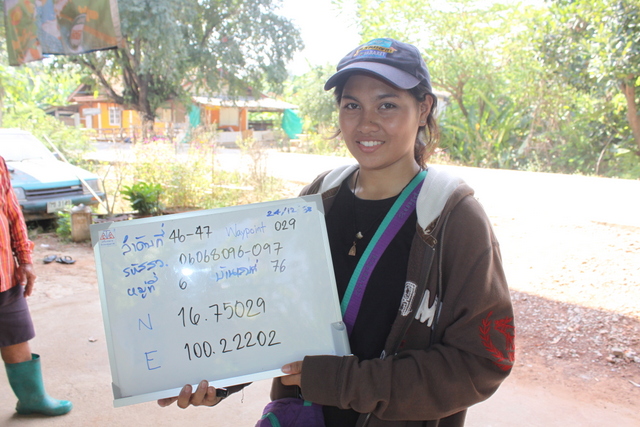 24/12/58
ลำดับที่ 46-47 Waypoint 029
รหัสรว. 06068096-097
หมู่ที่ 6 บ้านเลขที่ 76
N 16.75029
E 100.22202
M